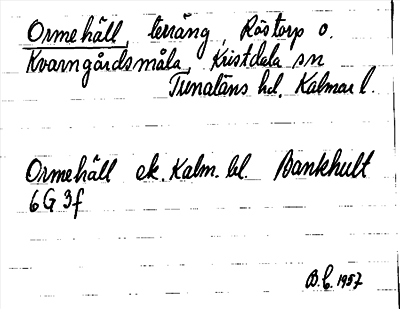 Ormehäll, terräng, Röstorp o.
Kvarngårdsmåla, Kristdala sn
Tunaläns hd. Kalmar l.
Ormehäll ek. Kalm. bl. Bankhult
6G 3f
B.C. 1957